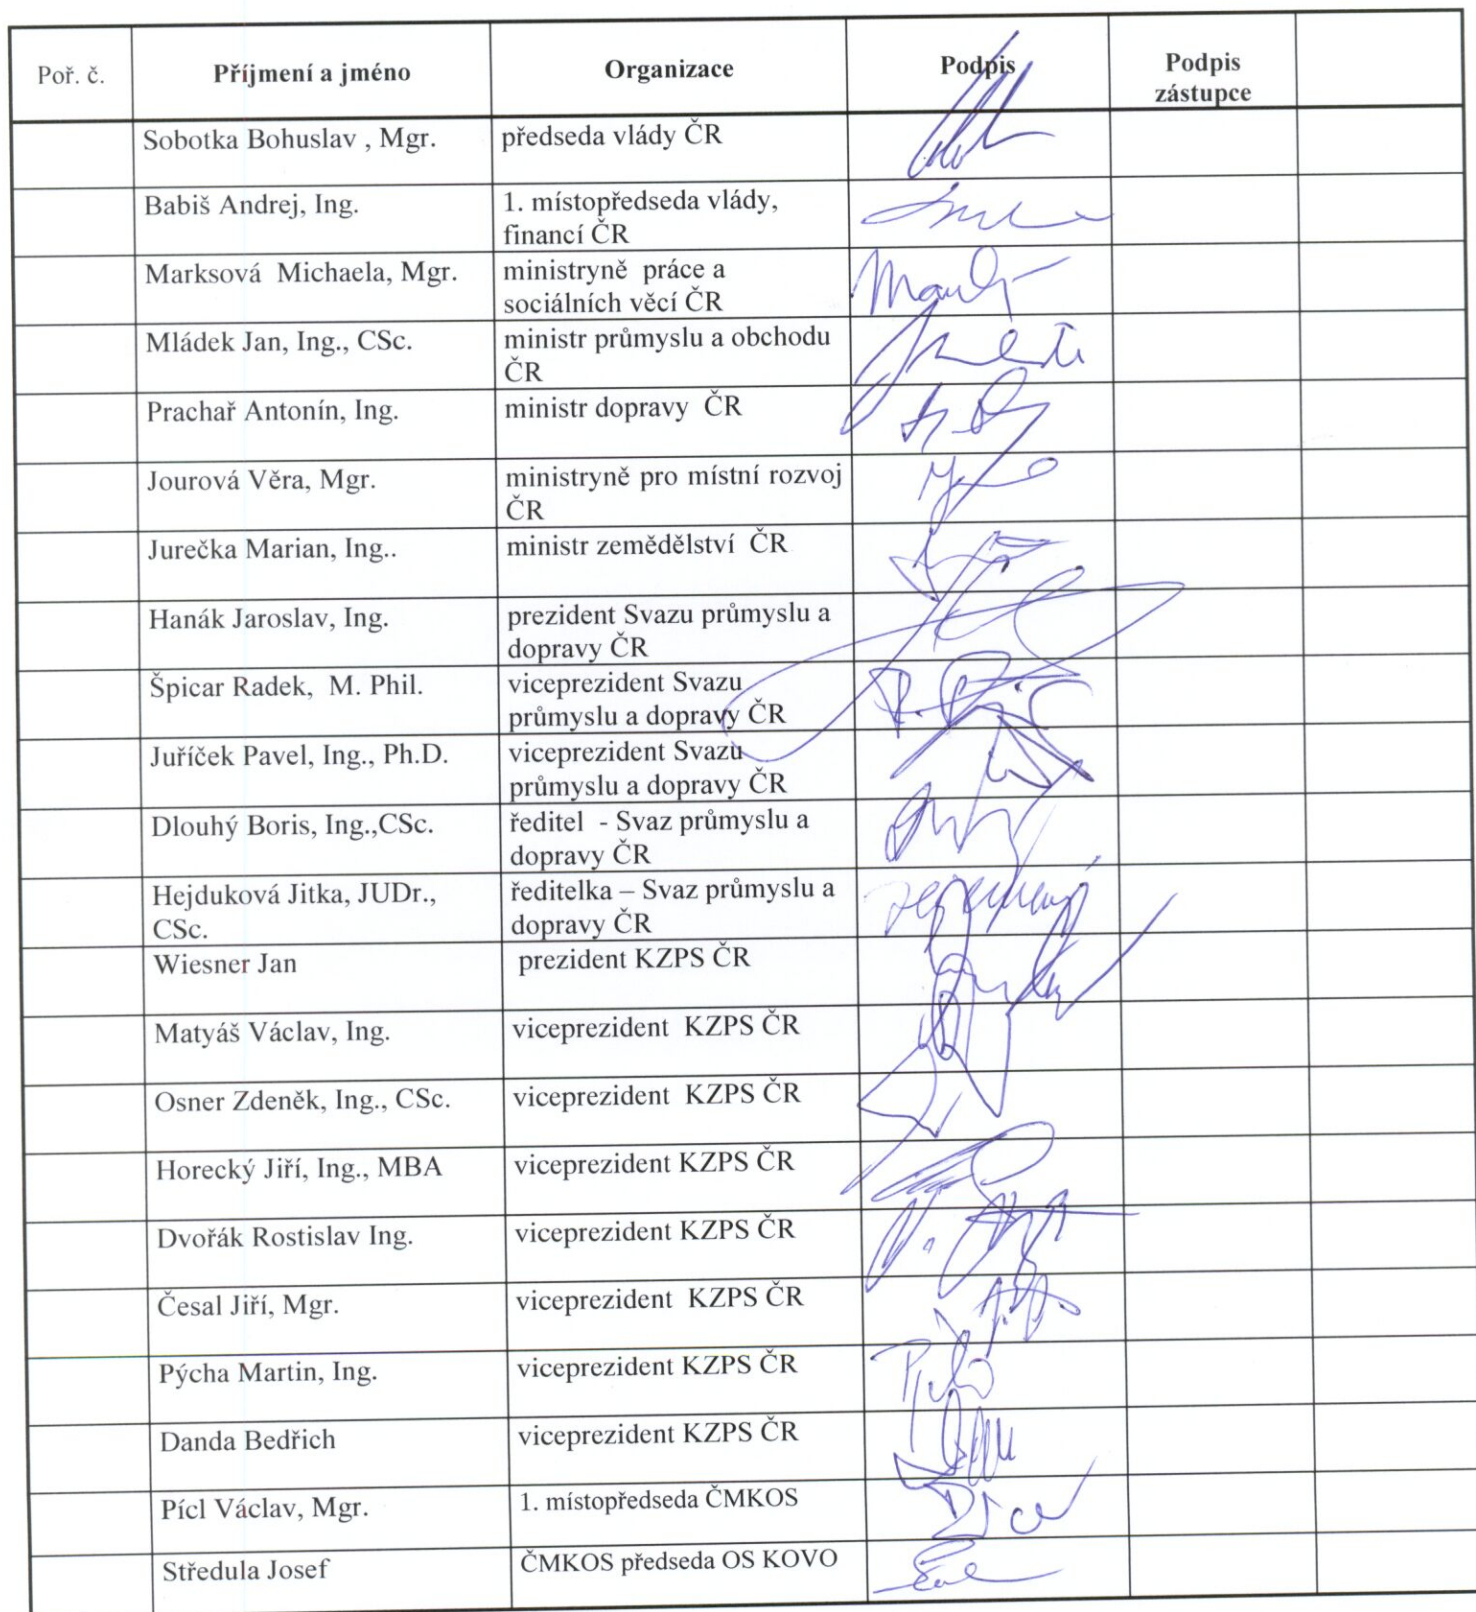 Poř. č. Příjmení a jméno Organizace Podpis Podpis
zástupce
Sobotka Bohuslav , Mgr. předseda vlády ČR
Babiš Andrej, Ing. 1. místopředseda vlády,
financí ČR
Marksová Michaela, Mgr. ministryně práce a
sociálních věcí ČR
Mládek Jan, Ing., CSc. ministr průmyslu a obchodu
ČR
Prachař Antonín, Ing. ministr dopravy ČR
Jourová Věra, Mgr. ministryně pro místní rozvoj
ČR
Jurečka Marian, Ing.. ministr zemědělství ČR
Hanák Jaroslav, Ing. prezident Svazu průmyslu a
dopravy ČR
Špicar Radek, M. Phil. viceprezident Svazu
průmyslu a dopravy ČR
Juříček Pavel, Ing., Ph.D. viceprezident Svazu
průmyslu a dopravy ČR
Dlouhý Boris, Ing.,CSc. ředitel - Svaz průmyslu a
dopravy ČR
Hejduková Jitka, JUDr., ředitelka – Svaz průmyslu a
CSc. dopravy ČR
Wiesner Jan prezident KZPS ČR
Matyáš Václav, Ing. viceprezident KZPS ČR
Osner Zdeněk, Ing., CSc. viceprezident KZPS ČR
Horecký Jiří, Ing., MBA viceprezident KZPS ČR
Dvořák Rostislav Ing. viceprezident KZPS ČR
Česal Jiří, Mgr. viceprezident KZPS ČR
Pýcha Martin, Ing. viceprezident KZPS ČR
Danda Bedřich viceprezident KZPS ČR
Pícl Václav, Mgr. 1. místopředseda ČMKOS
Středula Josef ČMKOS předseda OS KOVO